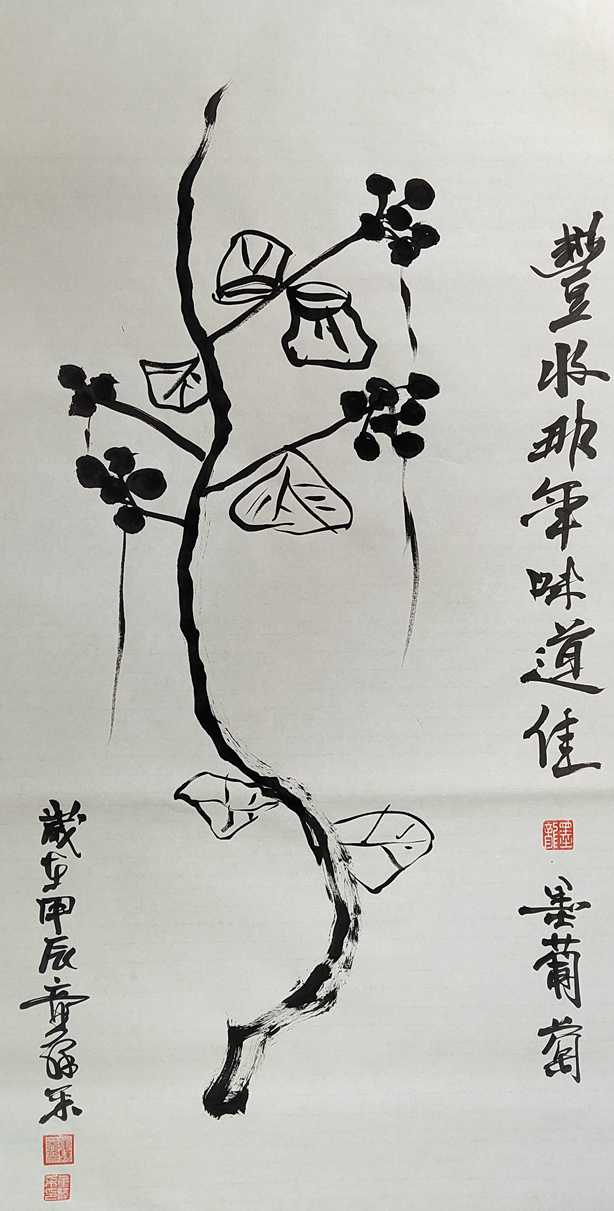 豐收那年味道佳
墨龍
墨葡萄
歲在甲辰